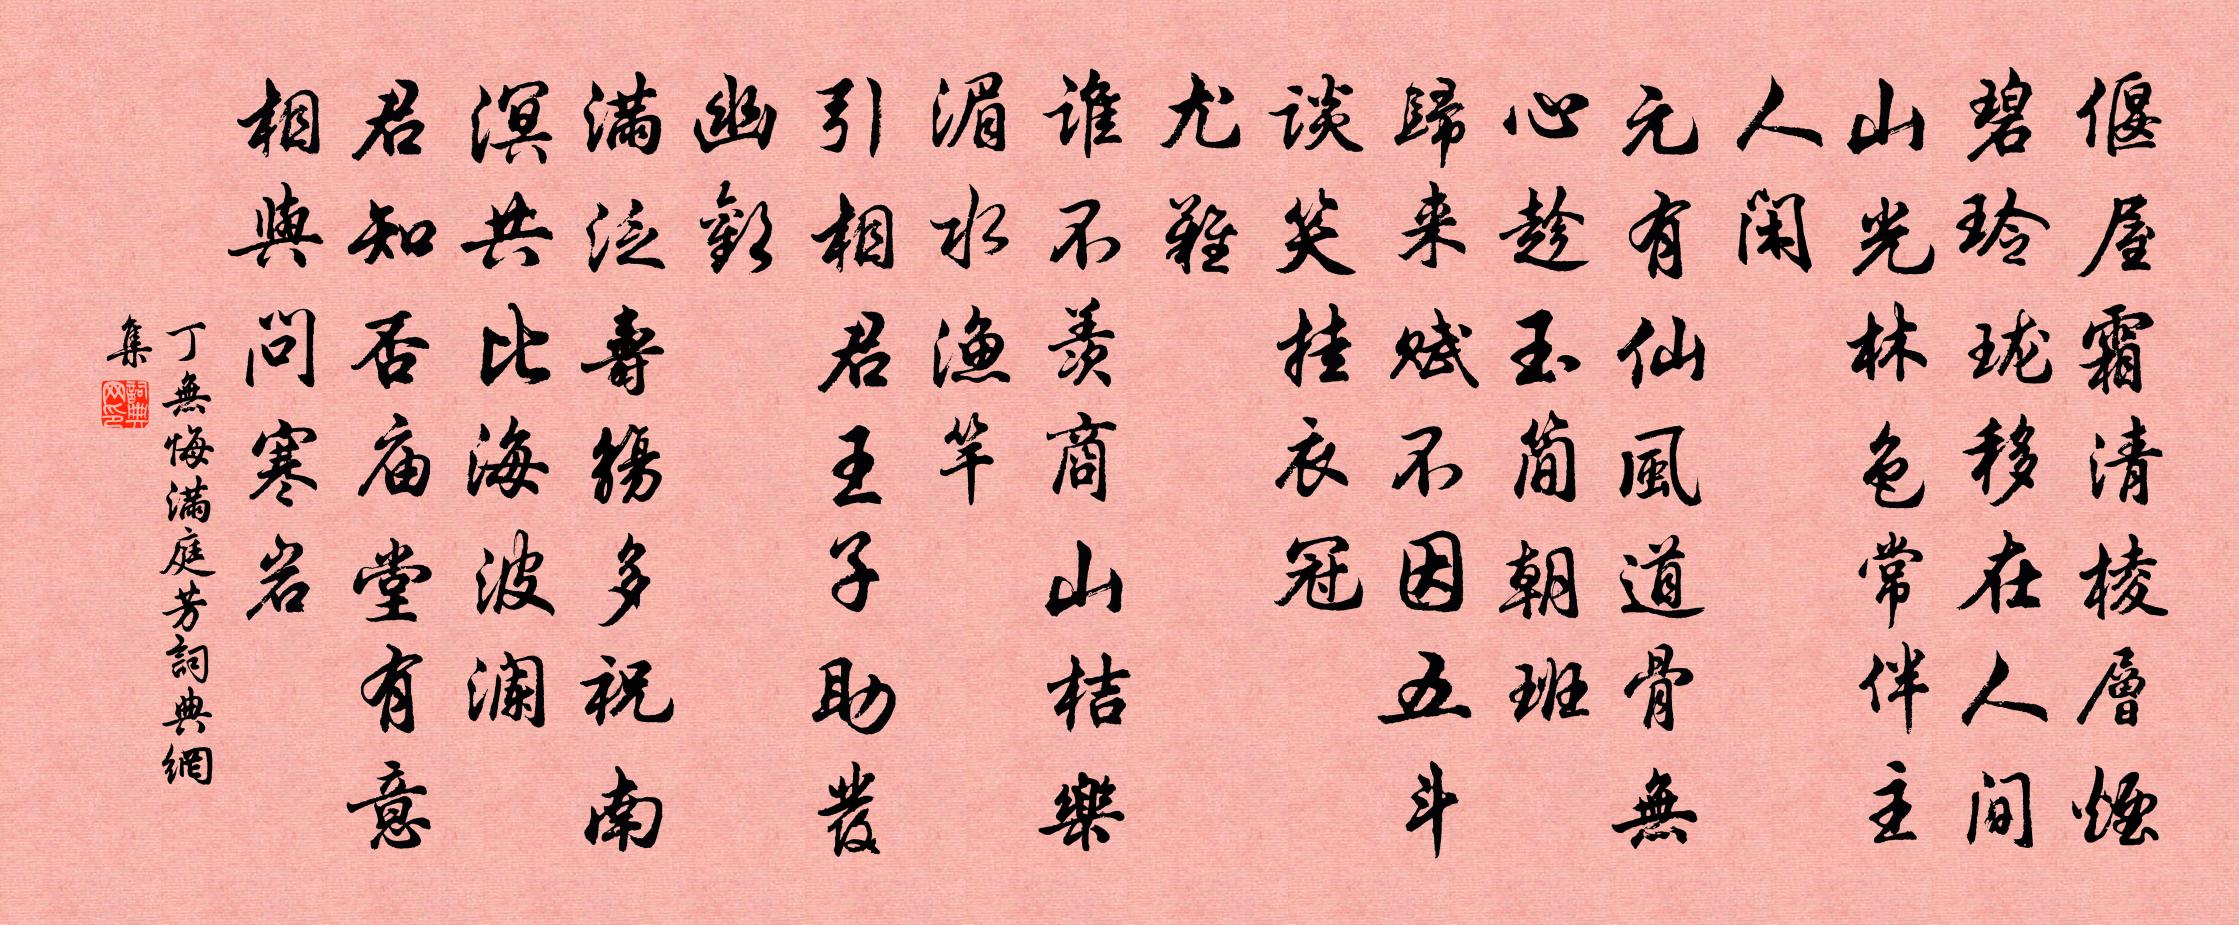 偃屋霜清棱層煙
碧玲珑移在人间
山光林色常伴主
人闲
元有仙風道骨無
心趁玉简朝班
歸来赋不因五斗
谈笑挂衣冠
尤難
谁不羡商山桔樂
湄水漁竿
引相君王子助發
幽歡
满泛壽觞多祝南
溟共比海波澜
君知否庙堂有意
相與问寒岩
丁無悔滿庭芳詞典網
集
詞典網印